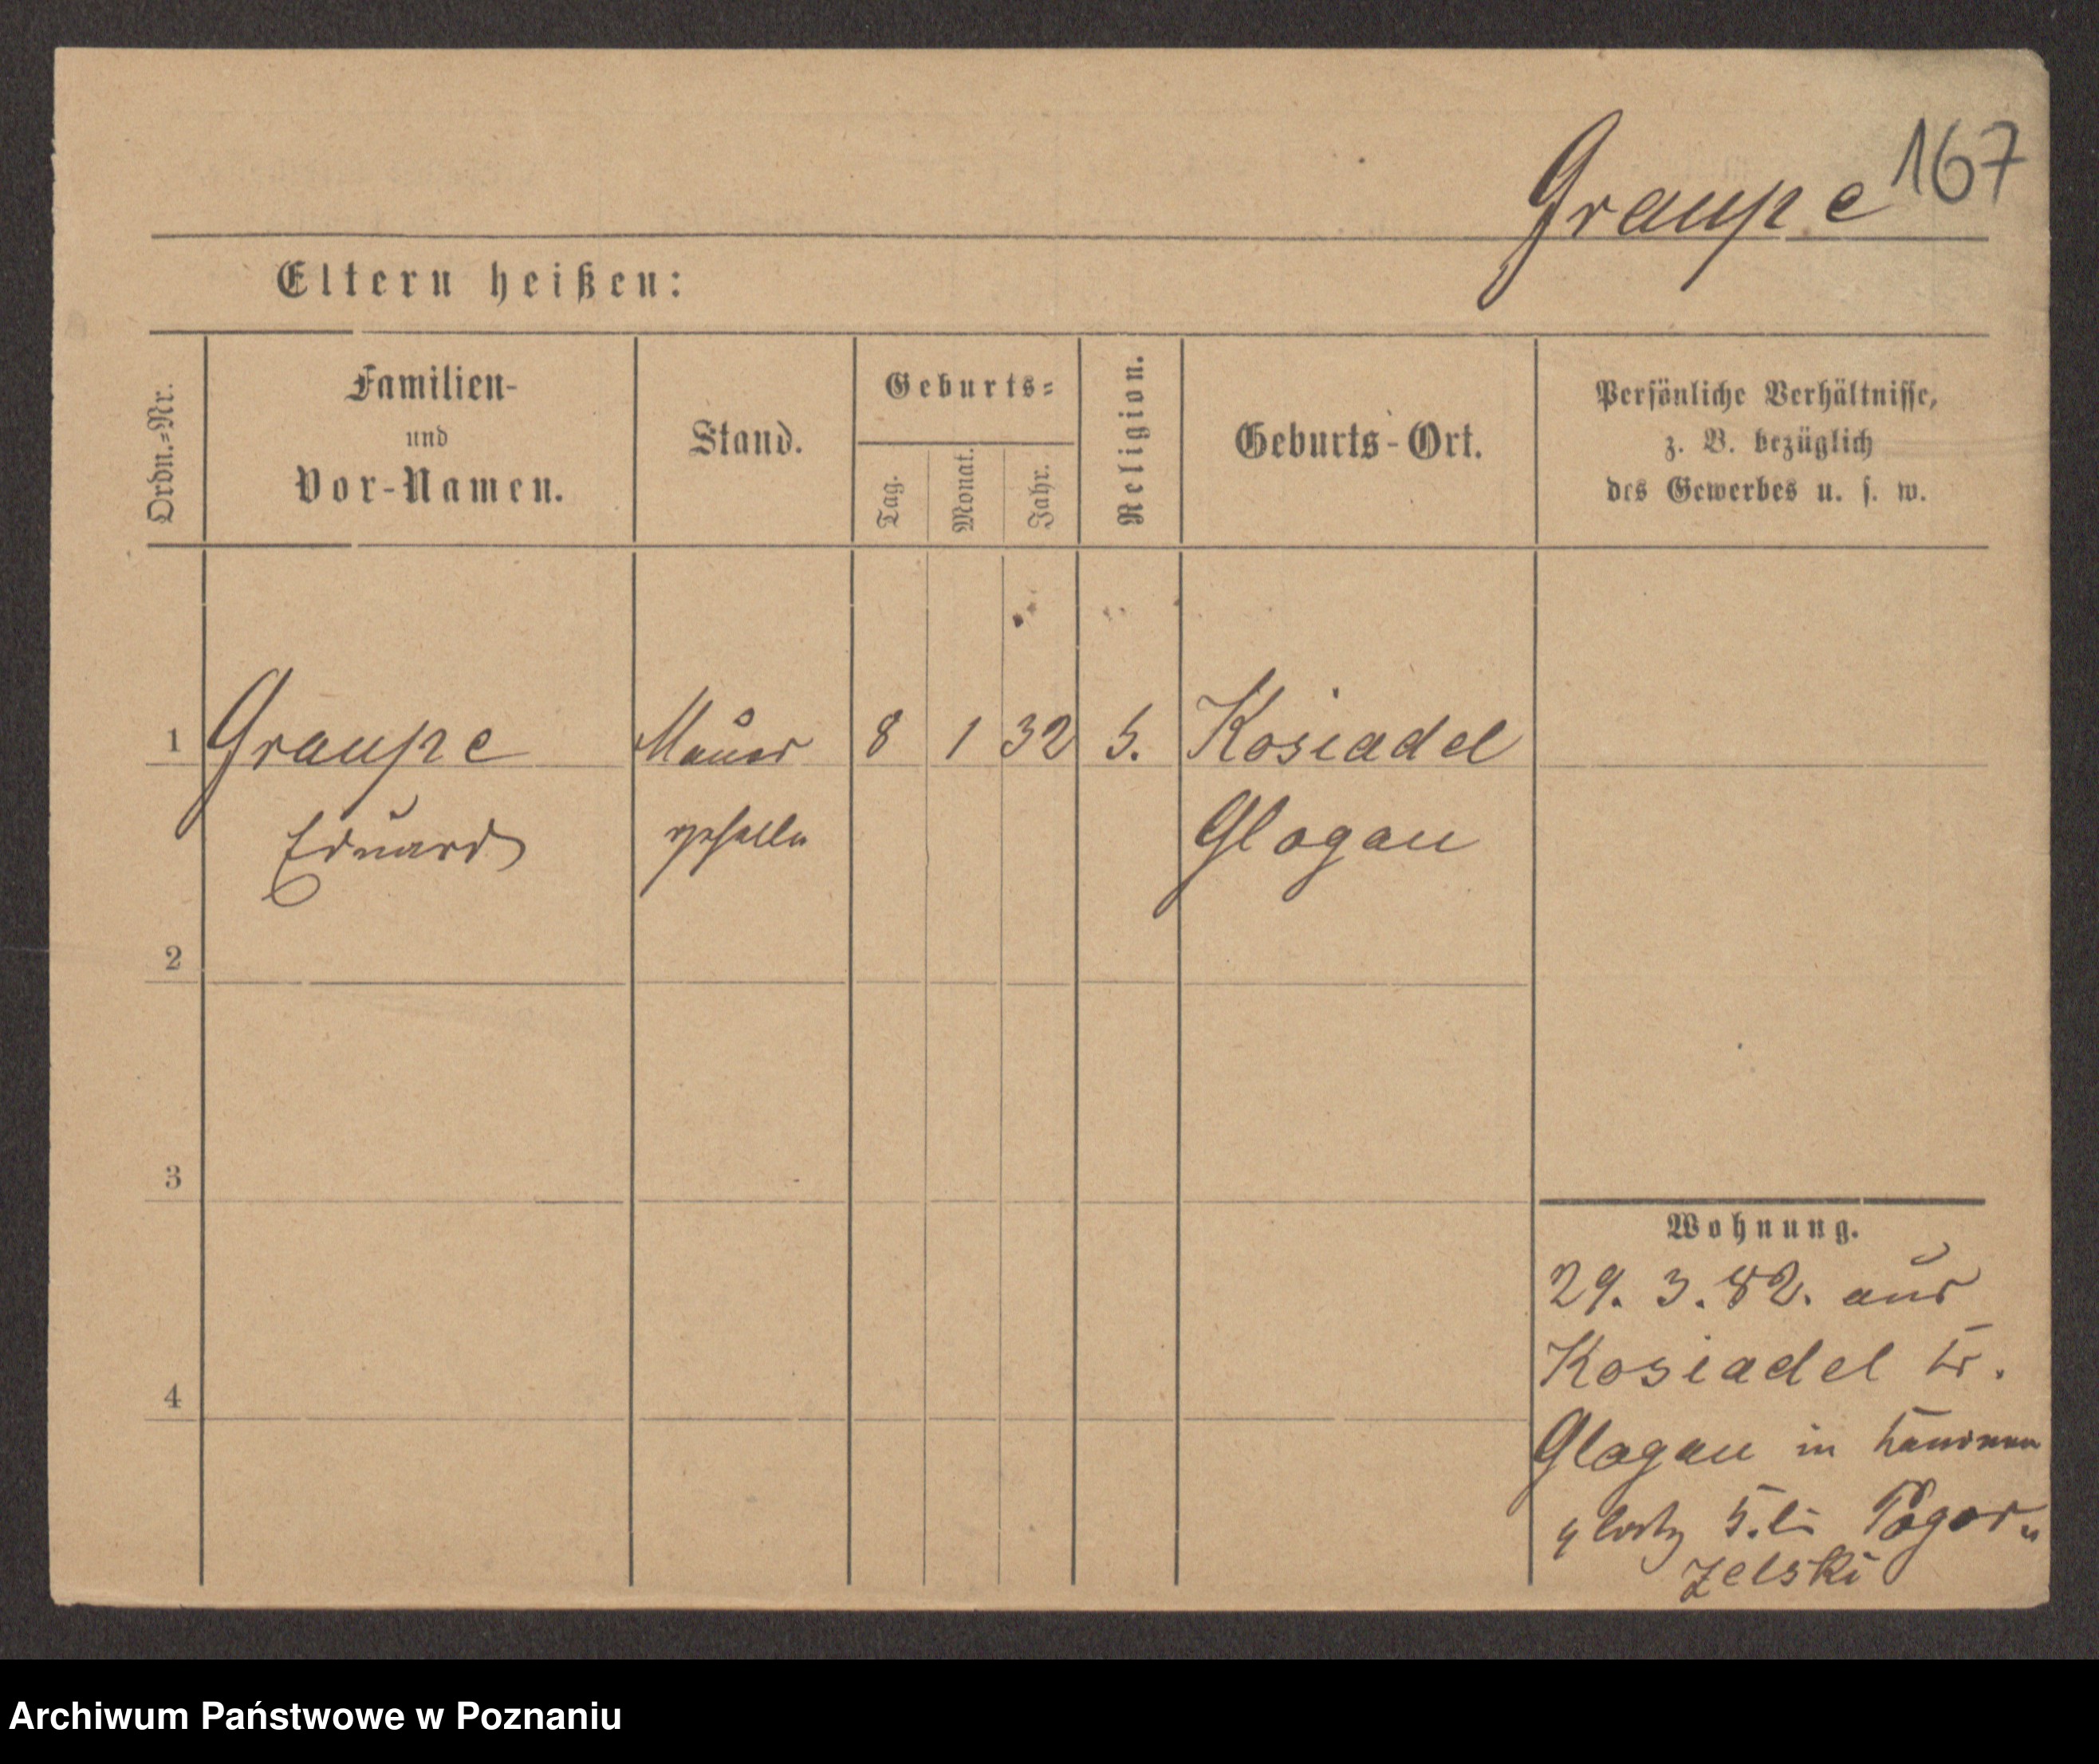 167
Graupe
Eltern heißen:
Ordn.-Nr.
Familien-
und
Vor-Namen.
Stand.
Geburts-
Tag.
Monat.
Jahr.
Religion.
Geburts-Ort.
Persönliche Verhältnisse,
z. B. bezüglich
des Gewerbes u. s. w.
1 Graupe Maurer 8 1 32 Kosiadel
Eduard geselle Glogau
2
3
4
Wohnung.
29. 3. 82. aus
Kosiadel Kr.
Glogau in
5. bei Pogor-
zelski
Archiwum Państwowe w Poznaniu